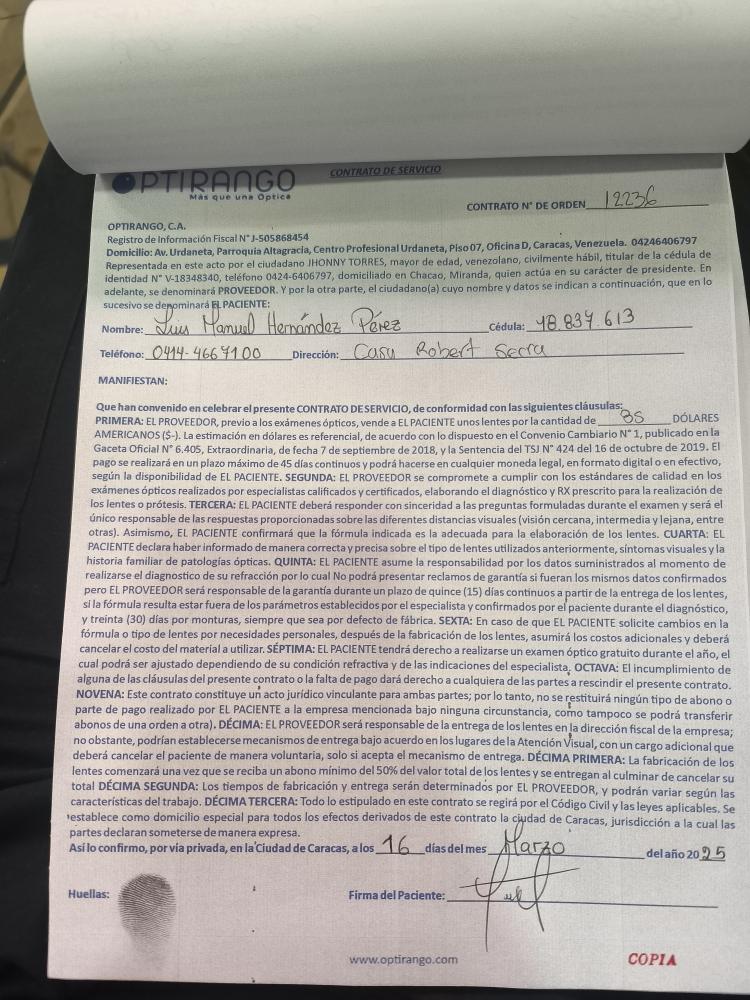 OPTIRANGO
Más que una Óptica
CONTRATO DE SERVICIO
CONTRATO N° DE ORDEN 12236
OPTIRANGO, C.A.
Registro de Información Fiscal N° J-505868454
Domicilio: Av. Urdaneta, Parroquia Altagracia, Centro Profesional Urdaneta, Piso 07, Oficina D, Caracas, Venezuela. 04246406797
Representada en este acto por el ciudadano JHONNY TORRES, mayor de edad, venezolano, civilmente hábil, titular de la cédula de
identidad N° V-18348340, teléfono 0424-6406797, domiciliado en Chacao, Miranda, quien actúa en su carácter de presidente. En
adelante, se denominará PROVEEDOR. Y por la otra parte, el ciudadano(a) cuyo nombre y datos se indican a continuación, que en lo
sucesivo se denominará EL PACIENTE:
Nombre: Luis Manuel Hernández Pérez Cédula: 18.837.613
Teléfono: 0414-4667100 Dirección: Casa Robert Serra
MANIFIESTAN:
Que han convenido en celebrar el presente CONTRATO DE SERVICIO, de conformidad con las siguientes cláusulas:
PRIMERA: EL PROVEEDOR, previo a los exámenes ópticos, vende a EL PACIENTE unos lentes por la cantidad de 35 DÓLARES
AMERICANOS ($-). La estimación en dólares es referencial, de acuerdo con lo dispuesto en el Convenio Cambiario N° 1, publicado en la
Gaceta Oficial N° 6.405, Extraordinaria, de fecha 7 de septiembre de 2018, y la Sentencia del TSJ N° 424 del 16 de octubre de 2019. El
pago se realizará en un plazo máximo de 45 días continuos y podrá hacerse en cualquier moneda legal, en formato digital o en efectivo,
según la disponibilidad de EL PACIENTE. SEGUNDA: EL PROVEEDOR se compromete a cumplir con los estándares de calidad en los
exámenes ópticos realizados por especialistas calificados y certificados, elaborando el diagnóstico y RX prescrito para la realización de
los lentes o prótesis. TERCERA: EL PACIENTE deberá responder con sinceridad a las preguntas formuladas durante el examen y será el
único responsable de las respuestas proporcionadas sobre las diferentes distancias visuales (visión cercana, intermedia y lejana, entre
otras). Asimismo, EL PACIENTE confirmará que la fórmula indicada es la adecuada para la elaboración de los lentes. CUARTA: EL
PACIENTE declara haber informado de manera correcta y precisa sobre el tipo de lentes utilizados anteriormente, síntomas visuales y la
historia familiar de patologías ópticas. QUINTA: EL PACIENTE asume la responsabilidad por los datos suministrados al momento de
realizarse el diagnostico de su refracción por lo cual No podrá presentar reclamos de garantía si fueran los mismos datos confirmados
pero EL PROVEEDOR será responsable de la garantía durante un plazo de quince (15) días continuos a partir de la entrega de los lentes,
si la fórmula resulta estar fuera de los parámetros establecidos por el especialista y confirmados por el paciente durante el diagnóstico,
y treinta (30) días por monturas, siempre que sea por defecto de fábrica. SEXTA: En caso de que EL PACIENTE solicite cambios en la
fórmula o tipo de lentes por necesidades personales, después de la fabricación de los lentes, asumirá los costos adicionales y deberá
cancelar el costo del material a utilizar. SÉPTIMA: EL PACIENTE tendrá derecho a realizarse un examen óptico gratuito durante el año, el
cual podrá ser ajustado dependiendo de su condición refractiva y de las indicaciones del especialista. OCTAVA: El incumplimiento de
alguna de las cláusulas del presente contrato o la falta de pago dará derecho a cualquiera de las partes a rescindir el presente contrato.
NOVENA: Este contrato constituye un acto jurídico vinculante para ambas partes; por lo tanto, no se restituirá ningún tipo de abono o
parte de pago realizado por EL PACIENTE a la empresa mencionada bajo ninguna circunstancia, como tampoco se podrá transferir
abonos de una orden a otra). DÉCIMA: EL PROVEEDOR será responsable de la entrega de los lentes en la dirección fiscal de la empresa;
no obstante, podrían establecerse mecanismos de entrega bajo acuerdo en los lugares de la Atención Visual, con un cargo adicional que
deberá cancelar el paciente de manera voluntaria, solo si acepta el mecanismo de entrega. DÉCIMA PRIMERA: La fabricación de los
lentes comenzará una vez que se reciba un abono mínimo del 50% del valor total de los lentes y se entregan al culminar de cancelar su
total DÉCIMA SEGUNDA: Los tiempos de fabricación y entrega serán determinados por EL PROVEEDOR, y podrán variar según las
características del trabajo. DÉCIMA TERCERA: Todo lo estipulado en este contrato se regirá por el Código Civil y las leyes aplicables. Se
establece como domicilio especial para todos los efectos derivados de este contrato la ciudad de Caracas, jurisdicción a la cual las
partes declaran someterse de manera expresa.
Así lo confirmo, por vía privada, en la Ciudad de Caracas, a los 16 días del mes Marzo del año 2025
Huellas:
Firma del Paciente:
www.optirango.com
COPIA